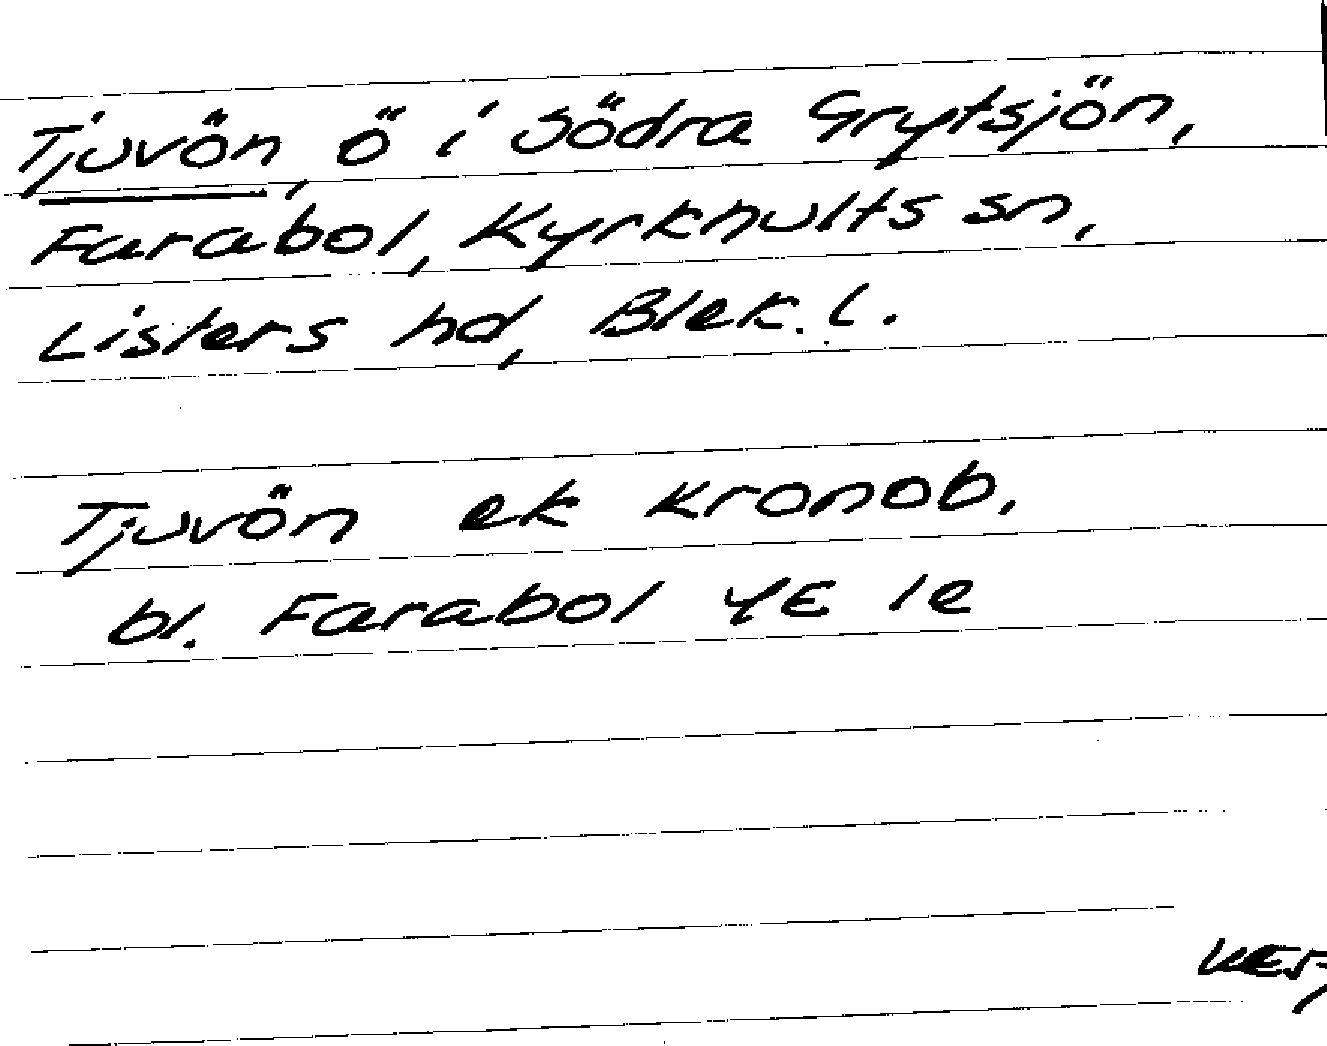 Tjuvön, ö i Södra Grytsjön,
Farabol, Kyrkhults sn,
Listers hd, Blek. l.
Tjuvön ek kronob.
bl. Farabol 4E 1e